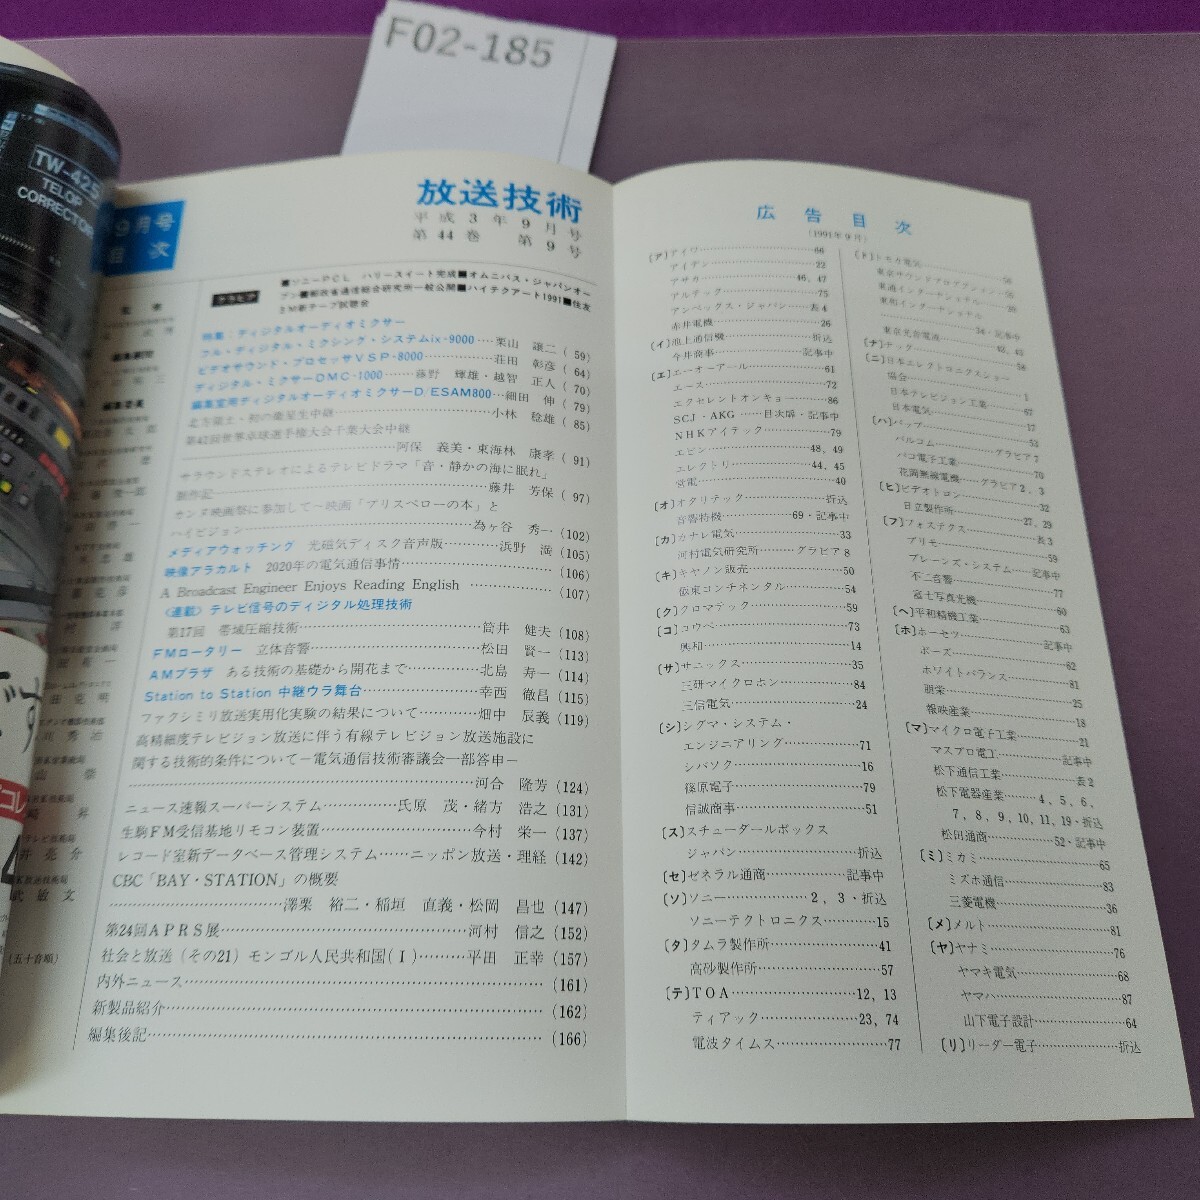 F02-185
TW-425
TELOP
CORRECTOR
9月号
目次
放送技術
平成3年9月号
第44巻 第9号
グラビア
■ソニーPCL ハリースイート完成■オムニバス・ジャパンオー
プン■郵政省通信総合研究所一般公開■ハイテクアート1991■住友
3M新テープ試聴会
特集：ディジタルオーディオミクサー
フル・ディジタル・ミクシング・システムix-9000…栗山 譲二( 59)
ビデオサウンド・プロセッサVSP-8000……………荘田 彰彦( 64)
ディジタル・ミクサーDMC-1000………藤野 輝雄・越智 正人( 70)
編集室用ディジタルオーディオミクサーD/ESAM800…細田 伸( 79)
北方領土・初の衛星生中継……………………………小林 稔雄( 85)
第42回世界卓球選手権大会千葉大会中継
……………………………阿保 義美・東海林 康孝( 91)
サラウンドステレオによるテレビドラマ「音・静かの海に眠れ」
制作記………………………………………………藤井 芳保( 97)
カンヌ映画祭に参加して～映画「プリスペローの本」と
ハイビジョン………………………………………為ヶ谷 秀一(102)
メディアウォッチング 光磁気ディスク音声版…………浜野 満(105)
映像アラカルト 2020年の電気通信事情……………………(106)
A Broadcast Engineer Enjoys Reading English ……………(107)
〈連載〉テレビ信号のディジタル処理技術
第17回 帯域圧縮技術………………………………筒井 健夫(108)
FMロータリー 立体音響………………………………松田 賢一(113)
AMプラザ ある技術の基礎から開花まで………………北島 寿一(114)
Station to Station 中継ウラ舞台…………………………幸西 徹昌(115)
ファクシミリ放送実用化実験の結果について…………畑中 辰義(119)
高精細度テレビジョン放送に伴う有線テレビジョン放送施設に
関する技術的条件について－電気通信技術審議会一部答申－
………………………………………………………河合 隆芳(124)
ニュース速報スーパーシステム……………氏原 茂・緒方 浩之(131)
生駒FM受信基地リモコン装置…………………………今村 栄一(137)
レコード室新データベース管理システム……ニッポン放送・理経(142)
CBC「BAY・STATION」の概要
……………………………澤栗 裕二・稲垣 直義・松岡 昌也(147)
第24回APRS展……………………………………………河村 信之(152)
社会と放送(その21) モンゴル人民共和国(Ⅰ)………平田 正幸(157)
内外ニュース………………………………………………………(161)
新製品紹介…………………………………………………………(162)
編集後記……………………………………………………………(166)
(五十音順)
広告目次
(1991年9月)
〔ア〕アイワ……………………66
アイデン……………………22
アサカ……………………46, 47
アルテック……………………75
アンペックス・ジャパン……表4
赤井電機……………………26
〔イ〕池上通信機……………………折込
今井商事……………………記事中
〔エ〕エーオーアール……………61
エース……………………72
エクセレントオンキョー……86
SCJ・AKG……目次扉・記事中
NHKアイテック……………79
エビン……………………48, 49
エレクトリ……………………44, 45
営電……………………40
〔オ〕オタリテック……………………折込
音響特機……………69・記事中
〔カ〕カナレ電気……………………33
河村電気研究所……グラビア8
〔キ〕キヤノン販売……………………50
伎東コンチネンタル…………54
〔ク〕クロマテック……………………59
〔コ〕コウベ……………………73
興和……………………14
〔サ〕サニックス……………………35
三研マイクロホン……………84
三信電気……………………24
〔シ〕シグマ・システム・
エンジニアリング……………71
シバソク……………………16
篠原電子……………………79
信誠商事……………………51
〔ス〕スチューダールボックス
ジャパン……………………折込
〔セ〕ゼネラル通商……………記事中
〔ソ〕ソニー……………2, 3・折込
ソニーテクトロニクス………15
〔タ〕タムラ製作所……………………41
高砂製作所……………………57
〔テ〕TOA……………………12, 13
ティアック……………………23, 74
電波タイムス……………………77
〔ト〕トカカ電気
東京サウンドプロダクション
東通インターナショナル
東和インターナショナル
……………34・記事中
東京光音電波
〔ナ〕ナック……………………58
〔ニ〕日本エレクトロニクスショー
協会
日本テレビジョン工業………67
日本電気……………………17
〔ハ〕バップ……………………53
バルコム……………グラビア7
パコ電子工業……………………70
花岡無線電機……グラビア2, 3
〔ヒ〕ビデオトロン……………………32
日立製作所……………………27, 29
〔フ〕フォステクス……………………表3
プリモ……………………59
ブレーンズ・システム…記事中
不二音響……………………77
富士写真光機……………………60
〔ヘ〕平和精機工業……………………63
〔ホ〕ホーセツ……………………記事中
ボーズ……………………62
ホワイトバランス……………81
朋栄……………………25
報映産業……………………18
〔マ〕マイクロ電子工業……………21
マスプロ電工……………記事中
松下通信工業……………………表2
松下電器産業………4, 5, 6,
7, 8, 9, 10, 11, 19・折込
松田通商……………52・記事中
〔ミ〕ミカミ……………………65
ミズホ通信……………………83
三菱電機……………………36
〔メ〕メルト……………………81
〔ヤ〕ヤナミ……………………76
ヤマキ電気……………………68
ヤマハ……………………87
山下電子設計……………………64
〔リ〕リーダー電子……………………折込